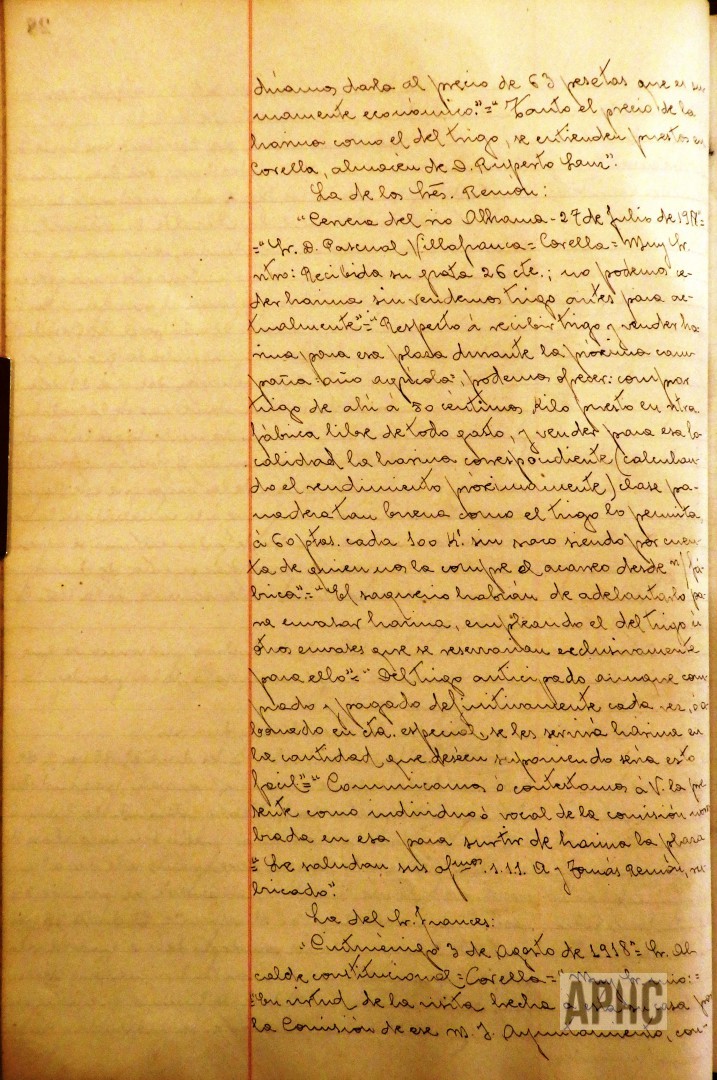 dríamos darla al precio de 63 pesetas que es su-
mamente económico."="Tanto el precio de la
harina como el del trigo, se entienden puestos en
Corella, almacén de D. Ruperto Sanz".
La de los Sres. Remón:
"Cervera del rio Alhama - 27 de Julio de 1918"=
="Sr. D. Pascual Villafranca = Corella = Muy Sr.
ntro: Recibida su grata 26 cte.; no podemos ce-
der harina sin vendernos trigo antes para ac-
tualmente"="Respecto á recibir trigo y vender ha-
rina para esa plaza durante la próxima cam-
paña =año agrícola=, podemos ofrecer: comprar
trigo de ahí á 50 céntimos Kilo puesto en ntra.
fábrica libre de todo gasto, y vender para esa lo-
calidad la harina correspondiente (calculan-
do el rendimiento próximamente) clase pa-
nadera tan buena como el trigo lo permita,
á 60 ptas. cada 100 K. sin saco siendo por cuen-
ta de quien nos la compre el acarreo desde n/ fá-
brica"="El saquerio habían de adelantarlo pa-
ra envasar harina, empleando el del trigo ú
otros envases que se reservarian exclusivamente
para ello"="Del trigo anticipado aunque com-
prado y pagado definitivamente cada vez, ó a-
bonado en cta. especial, se les servirá harina en
la cantidad que deseen suponiendo sería esto
facil"="Comunicamos ó contestamos á V. la pre-
sente como individuo ó vocal de la comisión nom-
brada en esa para surtir de harina la plaza
"= Le saludan sus afmos. s.s.s. A y Tomás Remón, ru-
bricado".
La del Sr. Frances:
"Cintruénigo 3 de Agosto de 1918"= Sr. Al-
calde constitucional = Corella = "Muy Sr. mio: =
="En virtud de la visita hecha a casa por
la Comisión de ese M. I. Ayuntamiento, con-
APHC